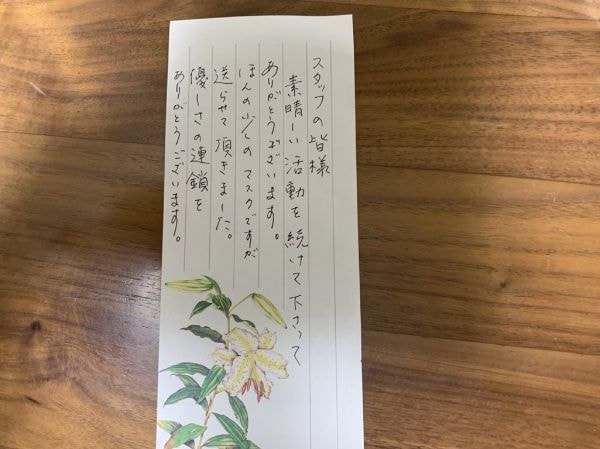 スタッフの皆様
素晴しい活動を続けて下さって
ありがとうございます。
ほんの少しのマスクですが
送らせて頂きました。
優しさの連鎖を
ありがとうございます。